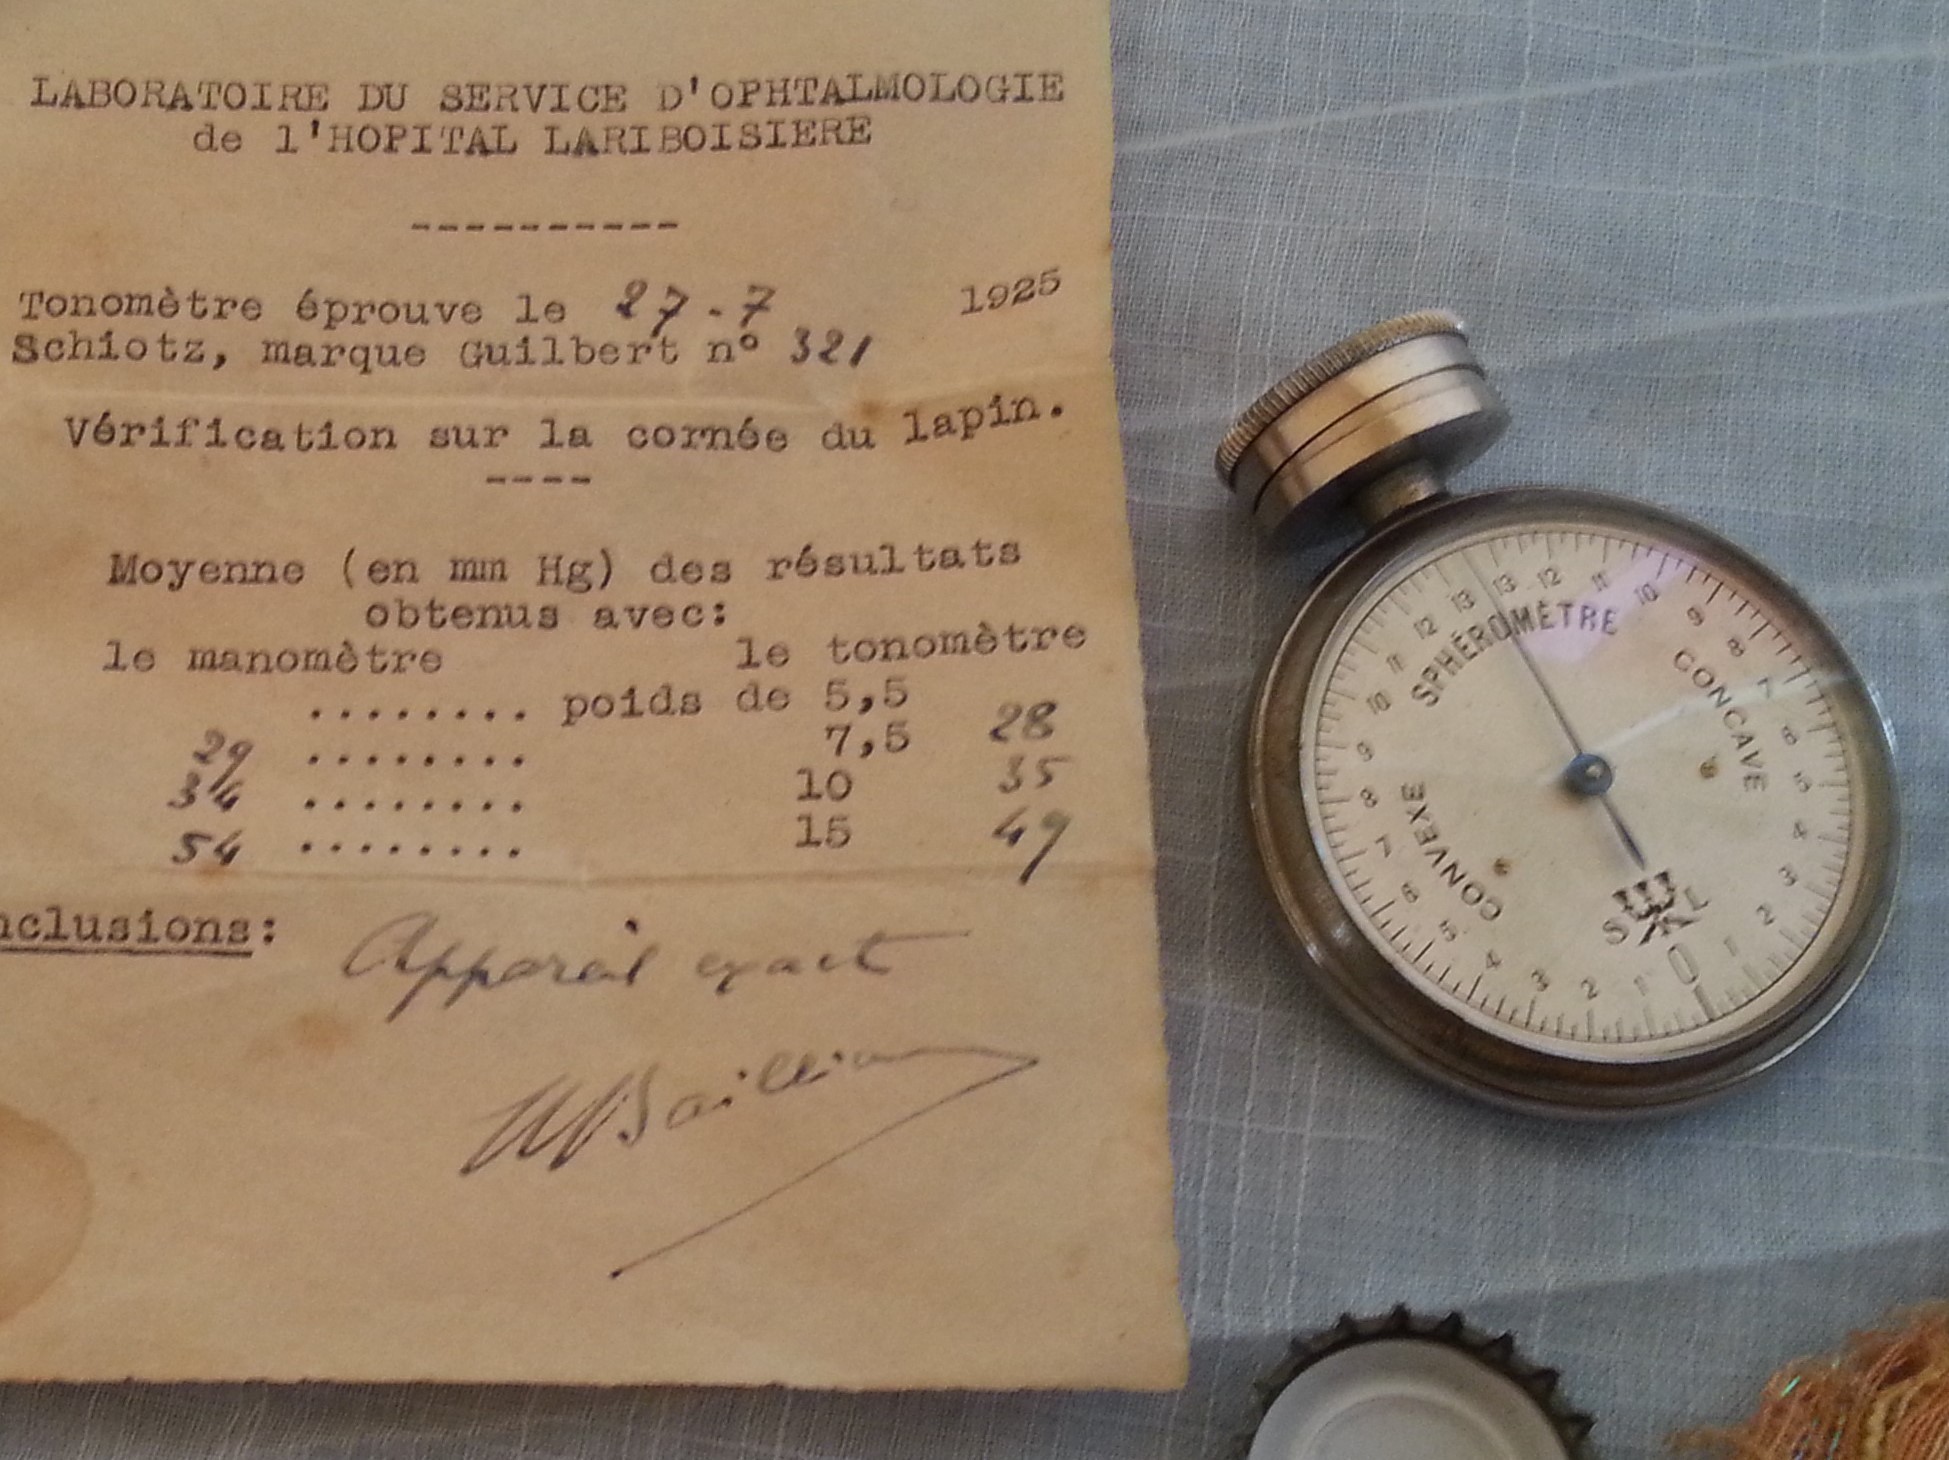 LABORATOIRE DU SERVICE D'OPHTALMOLOGIE
de l'HOPITAL LARIBOISIERE
----------
Tonomètre éprouve le 27-7 1925
Schiotz, marque Guilbert nº 321
Vérification sur la cornée du lapin.
----
Moyenne (en mm Hg) des résultats
obtenus avec:
le manomètre le tonomètre
........ poids de 5,5
29 ........ 7,5 28
34 ........ 10 35
54 ........ 15 49
nclusions: Appareil exact
SPHÉROMÈTRE
CONCAVE
CONVEXE
S L
13 12 11 10 9 8 7 6 5 4 3 2 1 0
1 2 3 4 5 6 7 8 9 10 11 12 13